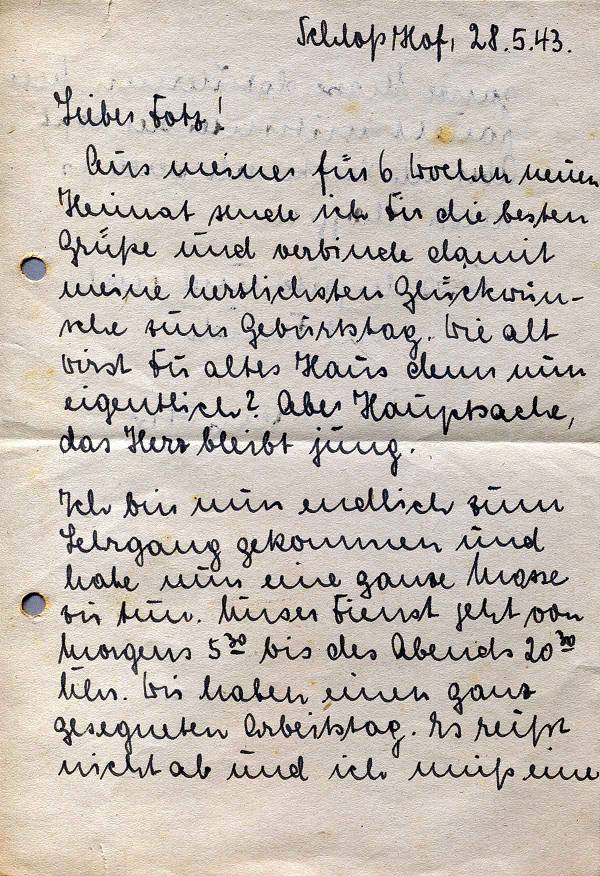 Schloß Hof, 28.5.43.
Lieber Fotz!
Aus meiner für 6 Wochen neuen
Heimat sende ich Dir die besten
Grüße und verbinde damit
meine herzlichsten Glückwün-
sche zum Geburtstag. Wie alt
wirst Du altes Haus denn nun
eigentlich? Aber Hauptsache,
das Herz bleibt jung.
Ich bin nun endlich zum
Lehrgang gekommen und
habe nun eine ganze Masse
zu tun. Unser Dienst geht von
Morgens 5 30 bis des Abends 20 30
Uhr. Wir haben einen ganz
gesegneten Arbeitstag. Es reißt
nicht ab und ich muß eine